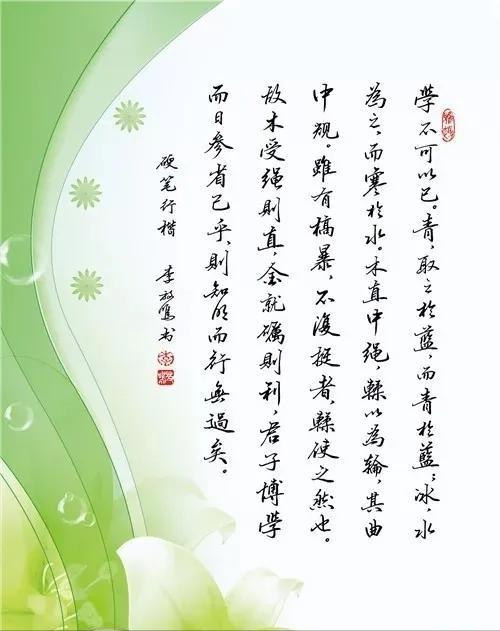 學不可以已。青，取之於藍，而青於藍；冰，水
為之，而寒於水。木直中绳，輮以為輪，其曲
中规。雖有槁暴，不復挺者，輮使之然也。
故木受绳則直，金就礪則利，君子博學
而日参省己乎，則知明而行無過矣。
硬笔行楷 李放鸣书